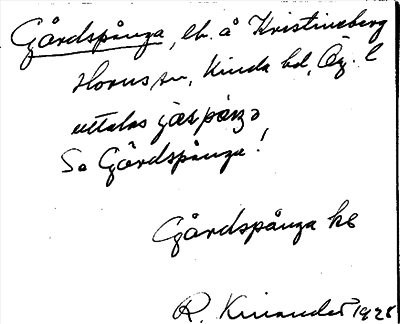 Gårdspånga, lh. å Kristineberg
Horns sn, Kinda hd, Ög. l
uttalas
Se Gårdspånga!
Gårdspånga hs
R. Kinander 1925